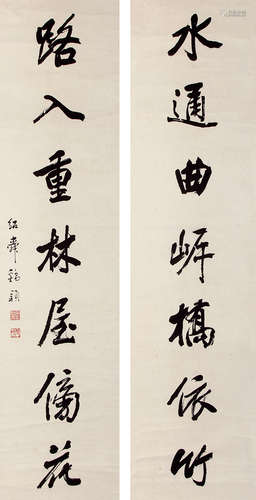 水通曲岸橋依竹
路入重林屋傍花